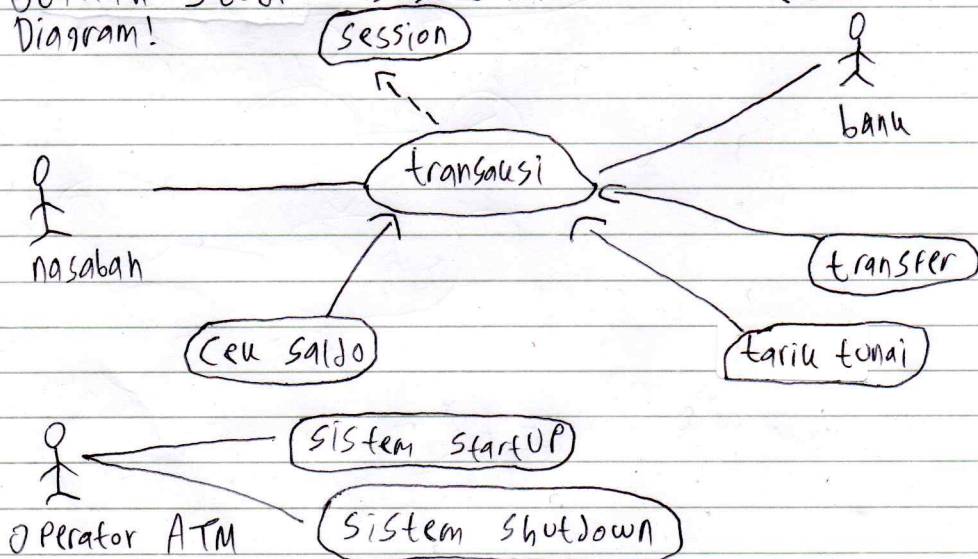 Diagram!
session
bank
transaksi
nasabah
transfer
Cek saldo
tarik tunai
sistem startUP
Operator ATM
sistem shutdown